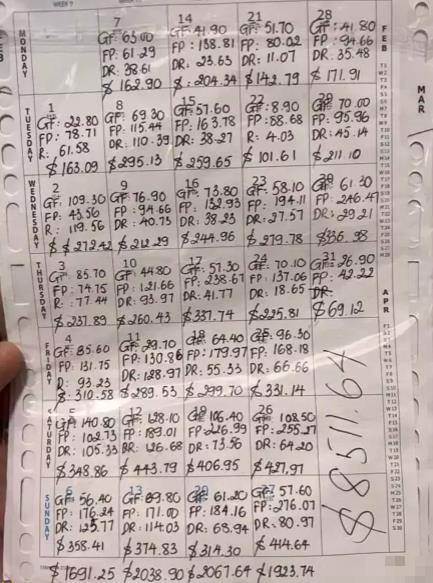 WEEK 9
MONDAY
7
GF: 63.00
FP: 61.29
DR: 38.61
$ 162.90
14
GF: 41.90
FP: 138.81
DR: 23.63
$ 204.34
21
GF: 51.70
FP: 80.02
DR: 11.07
$ 142.79
28
GF: 41.80
FP: 94.66
DR: 35.48
$ 171.91
FEB
TUESDAY
1
GF: 22.80
FP: 78.71
R: 61.58
$ 163.09
8
GF: 69.30
FP: 115.44
DR: 110.39
$ 295.13
15
GF: 57.60
FP: 163.78
DR: 38.27
$ 259.65
22
GF: 8.90
FP: 88.68
R: 4.03
$ 101.61
29
GF: 70.00
FP: 95.96
DR: 45.14
$ 211.10
MAR
WEDNESDAY
2
GF: 109.30
FP: 43.56
R: 119.56
$ 272.42
9
GF: 76.90
FP: 94.66
DR: 40.73
$ 212.29
16
GF: 73.80
FP: 132.93
DR: 38.23
$ 244.96
23
GF: 58.10
FP: 194.11
DR: 27.57
$ 279.78
30
GF: 61.30
FP: 246.47
DR: 29.21
$ 336.98
THURSDAY
3
GF: 85.70
FP: 74.75
R: 77.44
$ 237.89
10
GF: 44.80
FP: 121.66
DR: 93.97
$ 260.43
17
GF: 57.30
FP: 238.67
DR: 41.77
$ 337.74
24
GF: 70.10
FP: 137.06
DR: 18.65
$ 225.81
31
GF: 26.90
FP: 42.22
DR:
$ 69.12
APR
FRIDAY
4
GF: 85.60
FP: 131.75
D: 93.23
$ 310.58
11
GF: 29.70
FP: 130.86
DR: 128.97
$ 289.53
18
GF: 64.40
FP: 179.97
DR: 55.33
$ 299.70
25
GF: 96.30
FP: 168.18
DR: 66.66
$ 331.14
SATURDAY
5
GF: 140.80
FP: 102.73
DR: 105.33
$ 348.86
12
GF: 128.10
FP: 189.01
DR: 126.68
$ 443.79
19
GF: 106.40
FP: 226.99
DR: 73.56
$ 406.95
26
GF: 108.50
FP: 255.27
DR: 64.20
$ 427.97
SUNDAY
6
GF: 56.40
FP: 176.24
DR: 125.77
$ 358.41
13
GF: 89.80
FP: 171.00
DR: 114.03
$ 374.83
20
GF: 61.20
FP: 184.16
DR: 68.94
$ 314.30
27
GF: 57.60
FP: 276.07
DR: 80.97
$ 414.64
$ 1691.25
$ 2038.90
$ 2067.64
$ 1923.74
$ 8511.64